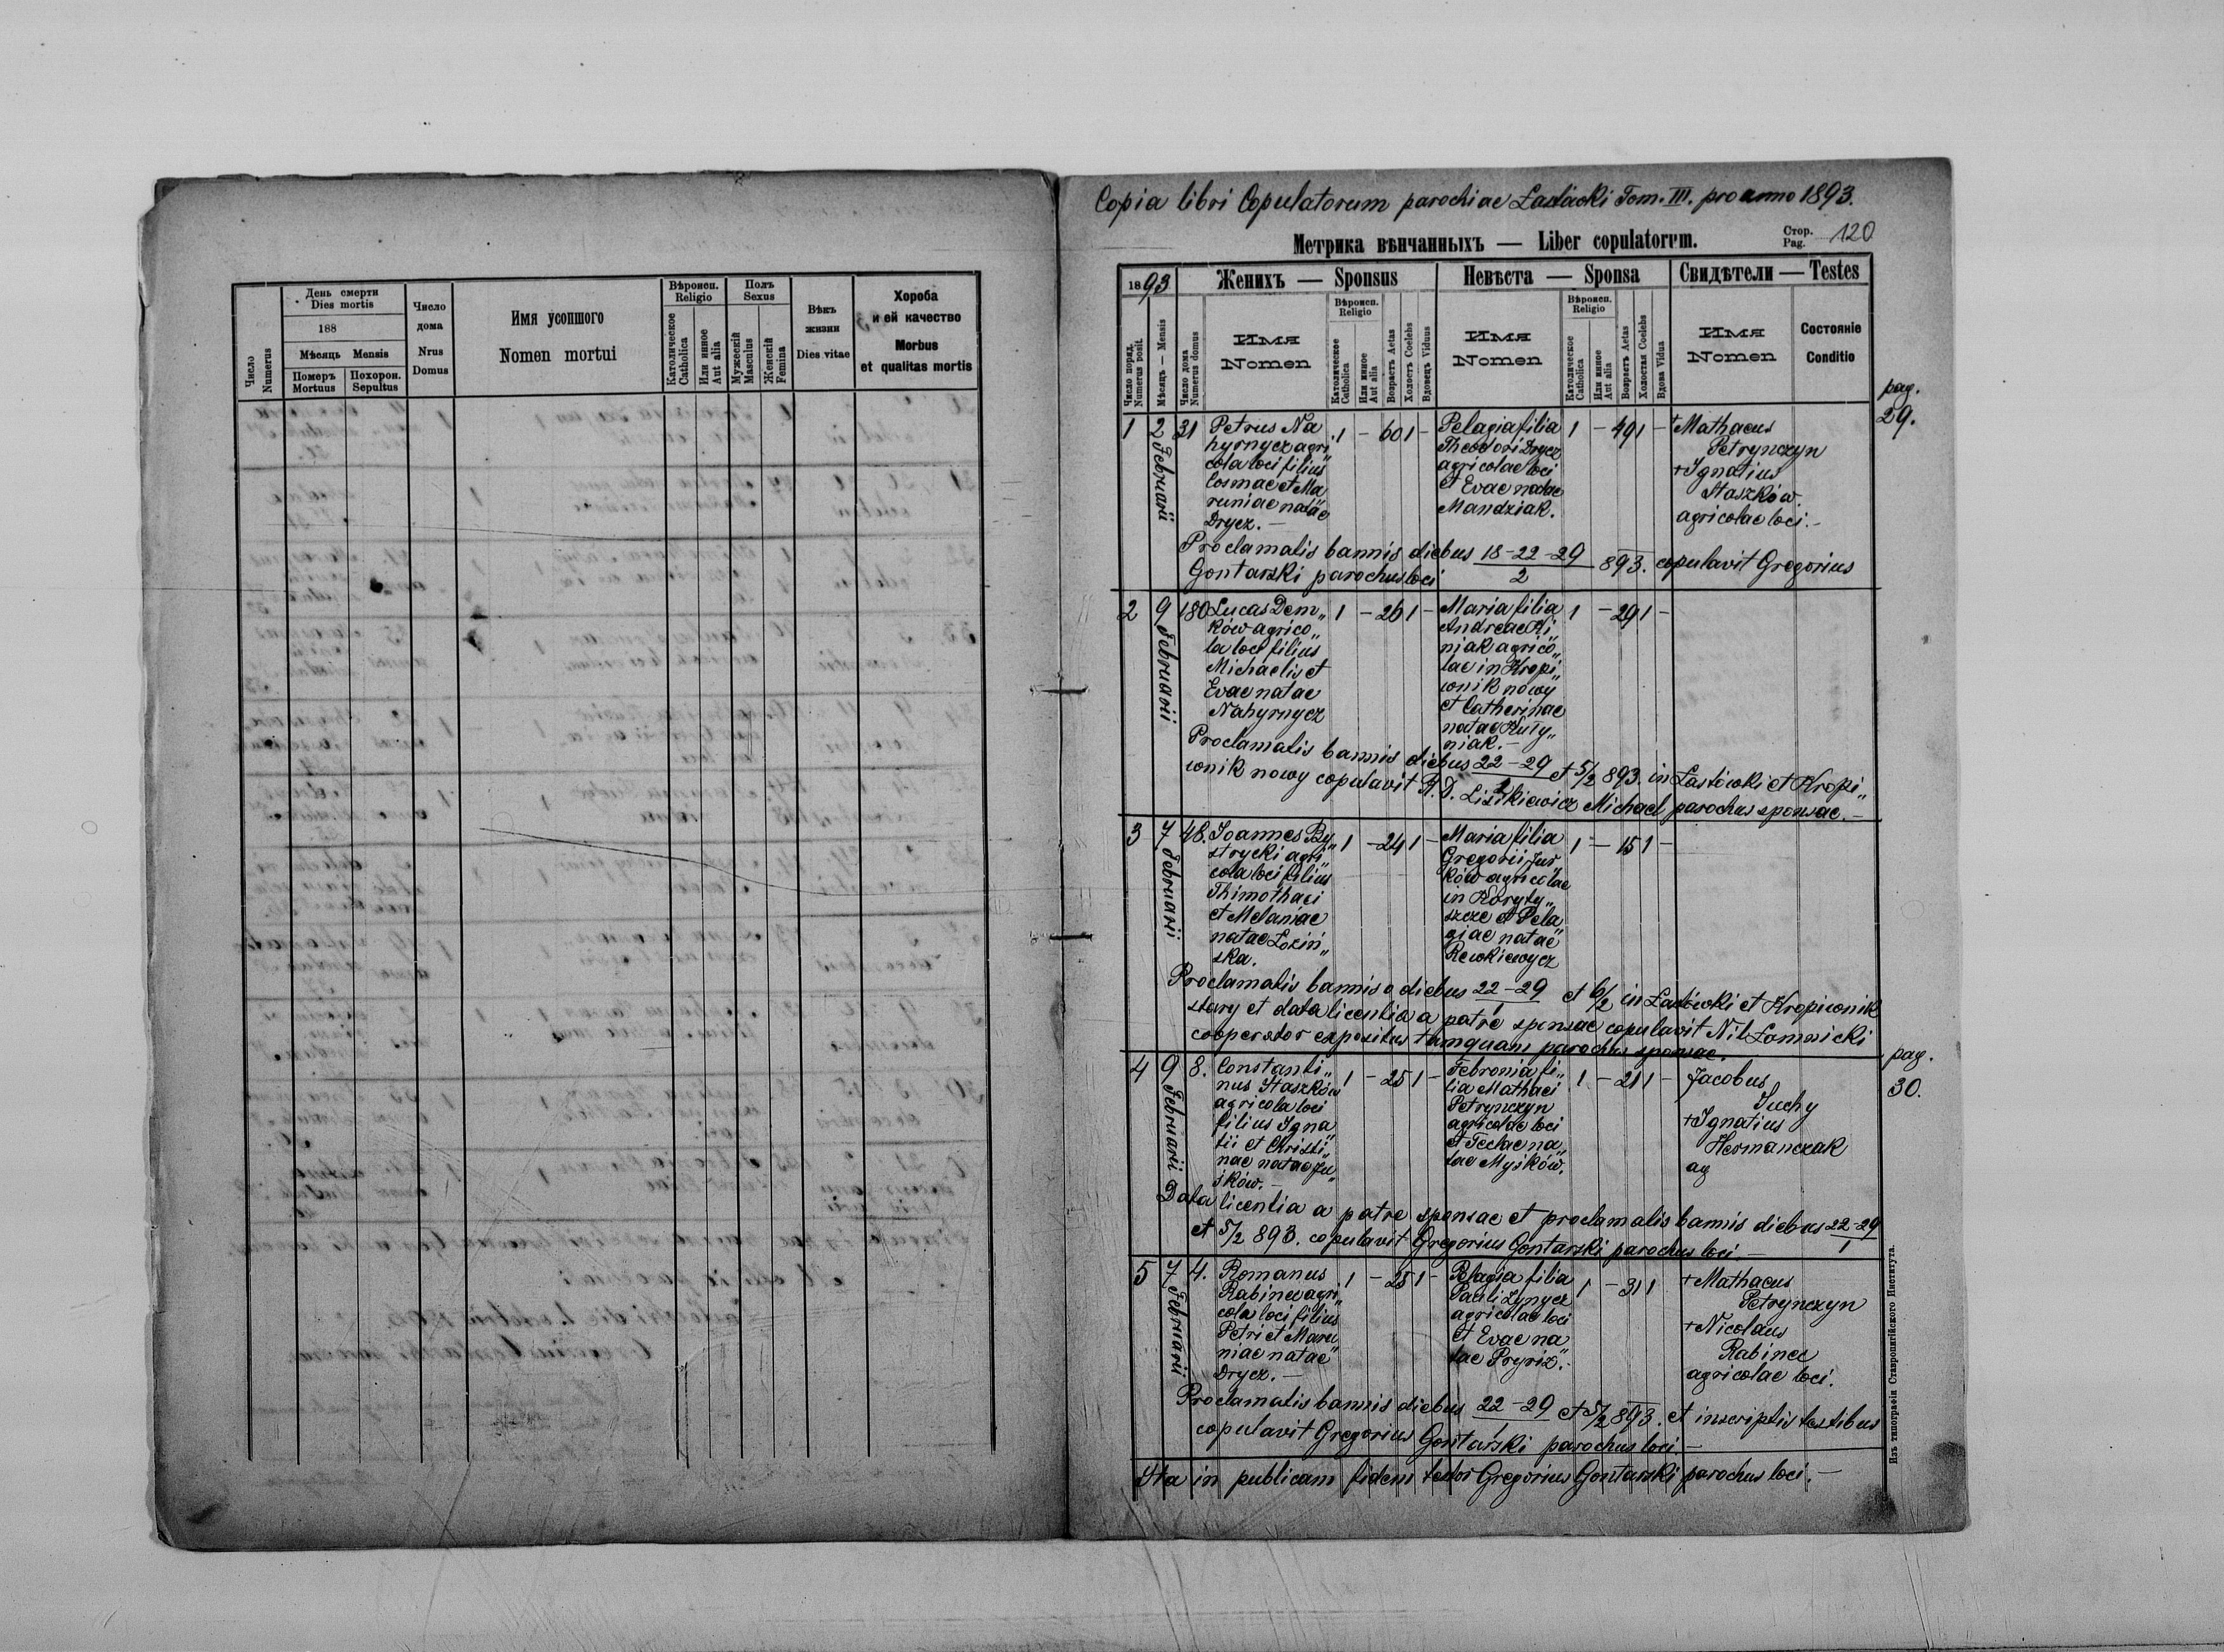 Число
Numerus
День смерти
Dies mortis
188
Мѣсяць Mensis
Померъ
Mortuus
Похорон.
Sepultus
Число
дома
Nrus
Domus
Имя усопшого
Nomen mortui
Вѣроисп.
Religio
Католическое
Catholica
Или инное
Aut alia
Полъ
Sexus
Мужескій
Masculus
Женскій
Femina
Вѣкъ
жизни
Dies vitae
Хороба
и ей качество
Morbus
et qualitas mortis
Copia libri Copulatorum parochiae Łastówki Tom. III. pro anno 1893.
Метрика вѣнчанныхъ — Liber copulatorum.
Стор.
Pag. 120
1893
Женихъ — Sponsus
Невѣста — Sponsa
Свидѣтели — Testes
Число поряд.
Numerus posit.
Мѣсяць — Mensis
Число дома
Numerus domus
Имя
Nomen
Вѣроисп.
Religio
Католическое
Catholica
Или инное
Aut alia
Возрастъ Aetas
Холостъ Coelebs
Вдовецъ Viduus
Имя
Nomen
Вѣроисп.
Religio
Католическое
Catholica
Или инное
Aut alia
Возрастъ Aetas
Холостая Coelebs
Вдова Vidua
Имя
Nomen
Состояніе
Conditio
pag.
29.
1
2
Februarii
31
Petrus Na
hyrnycz agri„
cola loci filius
Cosmae et Ma
runiae natae
Drycz. —
1 — 60 1 —
Pelagia filia
Theodori Drycz
agricolae loci
et Evae natae
Mandziak.
1 — 49 1 —
+Mathaeus
Petrynczyn
+Ignatius
Staszków
agricolae loci. —
Proclamatis bannis diebus 18-22-29/2 893. copulavit Gregorius
Gontarski parochus loci
2
9
Februarii
180
Lucas Dem„
ków agrico„
la loci filius
Michaelis et
Evae natae
Nahyrnycz
1 — 26 1 —
Maria filia
Andreae Ki„
niak agrico„
lae in Kropi„
wnik nowy
et Catherinae
natae
niak. —
1 — 29 1 —
Proclamatis bannis diebus 22-29/1 et 5/2 893. in Łastówki et Kropi„
wnik nowy copulavit Michael parochus sponsae. —
3
7
Februarii
48.
Joannes By„
strycki agri„
cola loci filius
Thimothaei
et Melaniae
natae Łoziń„
ska.
1 — 24 1 —
Maria filia
Gregorii Jur
ków agricolae
in Koryty„
szcze et Pela„
giae natae
Rewkiewycz
1 — 15 1 —
Proclamatis bannis diebus 22-29/1 et 6/2 in Łastówki et Kropiwnik
stary et data licentia a patre sponsae copulavit Nil Łomnicki
cooperator expositus tamquam parochus sponsae.
pag.
30.
4
9
Februarii
8.
Constanti„
nus Staszków
agricola loci
filius Igna
tii et Christi„
nae natae Ju„
śków. —
1 — 25 1 —
Febronia fi„
lia Mathaei
Petrynczyn
agricolae loci
et Teclae na„
tae Myśków.
1 — 21 1 —
Jacobus
Suchy
+Ignatius
Hermanczak
ag
Data licentia a patre sponsae et proclamatis bannis diebus 22-29/1
et 5/2 893. copulavit Gregorius Gontarski parochus loci —
5
7
Februarii
4.
Romanus
Rabinec agri„
cola loci filius
Petri et Maru
niae natae
Drycz. —
1 — 25 1 —
Pelagia filia
Pauli Lynycz
agricolae loci
et Evae na„
tae Pryriz. —
1 — 31 1
+Mathaeus
Petrynczyn
+Nicolaus
Rabinec
agricolae loci.
Proclamatis bannis diebus 22-29/1 et 5/2 893. et inscriptis testibus
copulavit Gregorius Gontarski parochus loci. —
Ita in publicam fidem testor Gregorius Gontarski parochus loci. —
Изъ типографіи Ставропигійского Института.